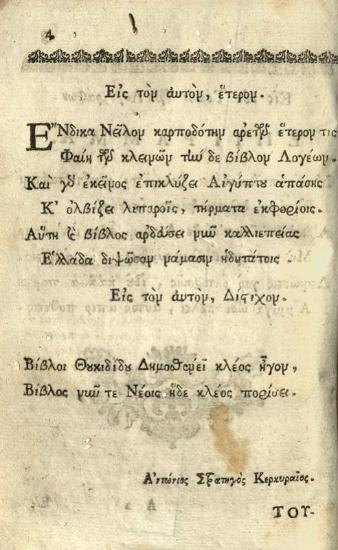 4
Εἰς τὸν αὐτὸν, ἕτερον.
ἜΝδικα Νεῖλον καρποδότην ἀρετῶν ἕτερον τις
Φαίη τῶν κλεινῶν τῶν δε βίβλον Λογέων.
Καὶ γὰρ ἐκεῖνος ἐπικλύζει Αἰγύπτου ἁπάσης
Κ' ὀλβίζει λιπαροῖς, τέρματα ἐκφορίοις.
Αὕτη ἡ βίβλος ἀρδεύσει νῦν καλλιεπείας
Ἑλλάδα διψῶσαν νάμασιν ἡδυτάτοις.
Εἰς τὸν αὐτὸν, Δίστιχον.
Βίβλοι Θουκιδίδου Δημοσθένει κλέος ἦγον,
Βίβλος νῦν τε Νέοις ἥδε κλέος πορίσει.
Ἀντώνιος Στρατηγὸς Κερκυραῖος.
ΤΟΥ-